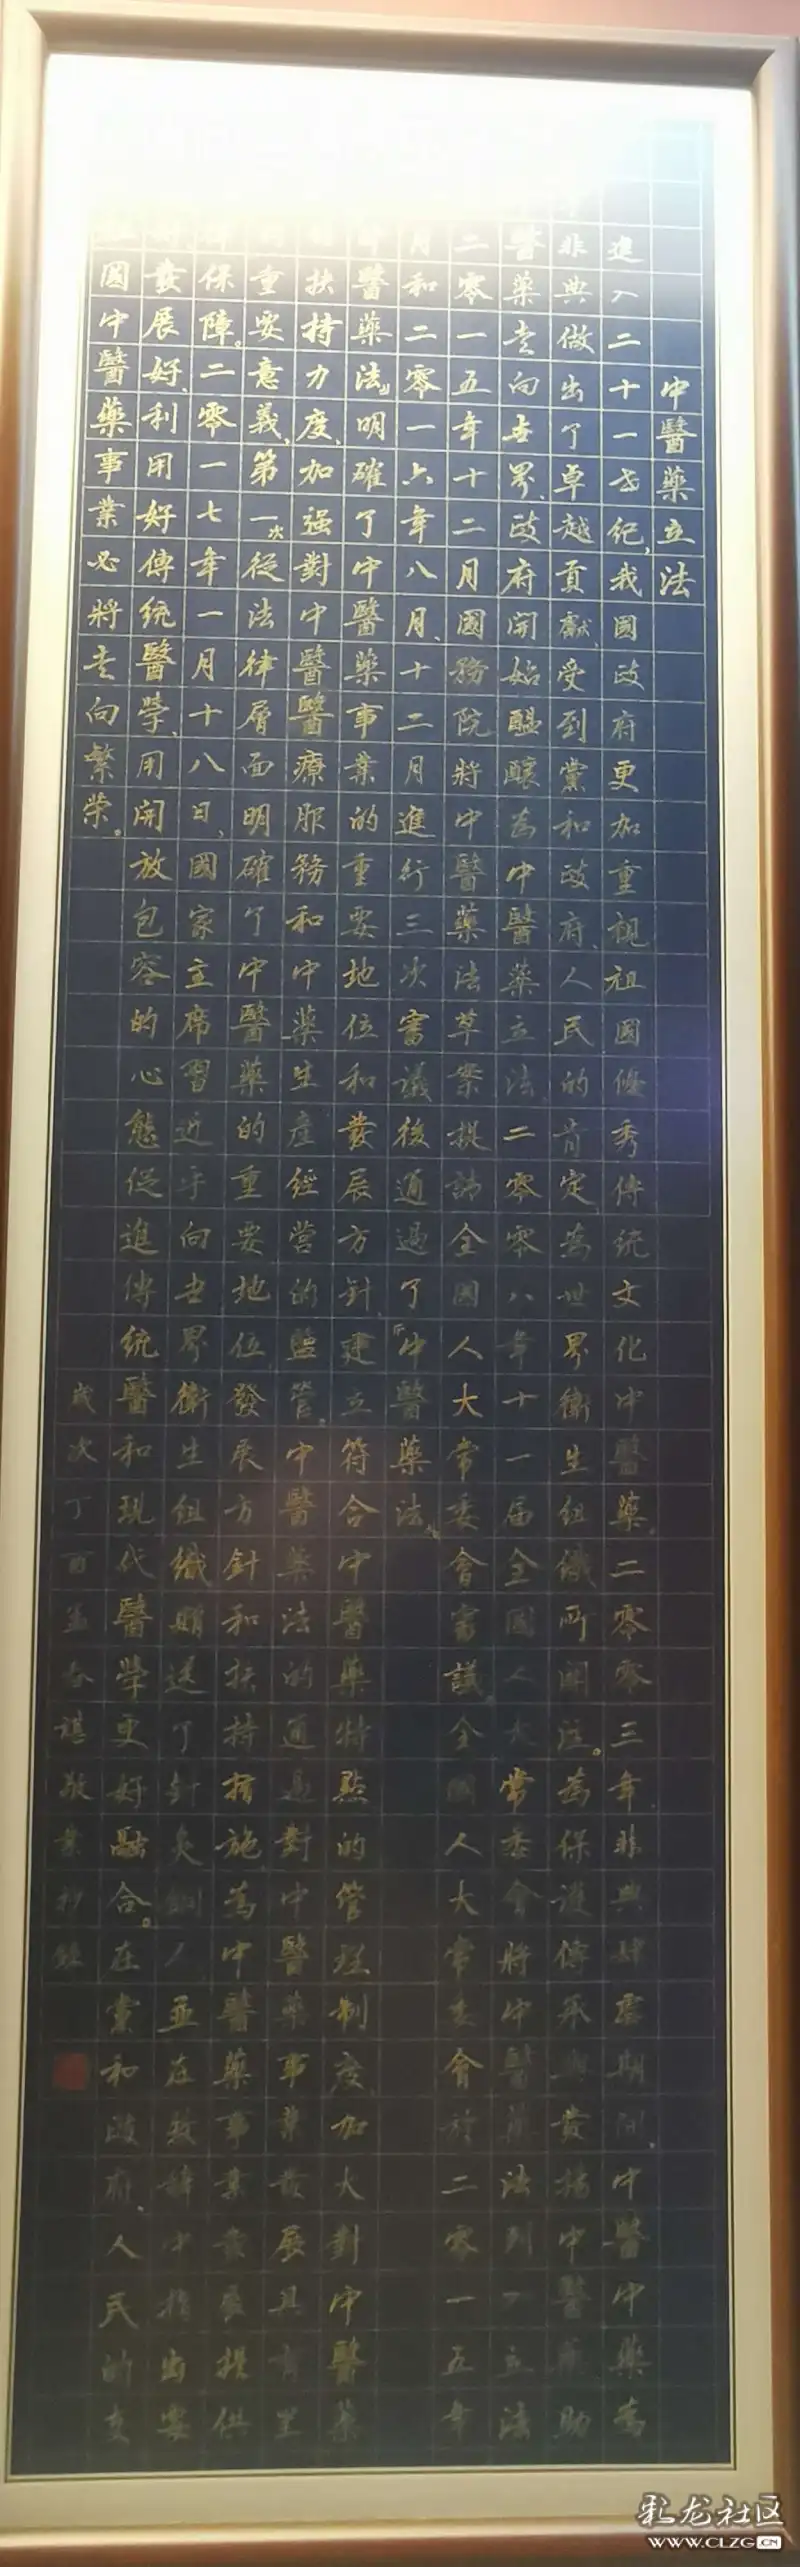 中醫藥立法
進入二十一世紀，我國政府更加重視祖國優秀傳統文化中醫藥。二零零三年非典肆虐期間，中醫中藥為
非典做出了卓越貢獻，受到黨和政府、人民的肯定，為世界衛生組織所關注。為保護傳承與發揚中醫藥，助
醫藥走向世界，政府開始醖釀為中醫藥立法，二零零八年十一屆全國人大常委會將中醫藥法列入立法
二零一五年十二月國務院將中醫藥法草案提請全國人大常委會審議。全國人大常委會於二零一五年
月和二零一六年八月、十二月進行三次審議後通過了『中醫藥法』。
中醫藥法』明確了中醫藥事業的重要地位和發展方針，建立符合中醫藥特點的管理制度，加大對中醫藥
扶持力度，加强對中醫醫療服務和中藥生產經營的監管。中醫藥法的通過對中醫藥事業發展具有里
重要意義，第一次從法律層面明確了中醫藥的重要地位、發展方針和扶持措施，為中醫藥事業發展提供
保障。二零一七年一月十八日，國家主席習近平向世界衛生組織贈送了針灸銅人，並在致辭中指出，要
發展好、利用好傳統醫學，用開放包容的心態促進傳統醫和現代醫學更好融合。在黨和政府、人民的支
國中醫藥事業必將走向繁榮。
歲次丁酉孟春 敬業抄錄
彩龙社区
WWW.CLZG.CN